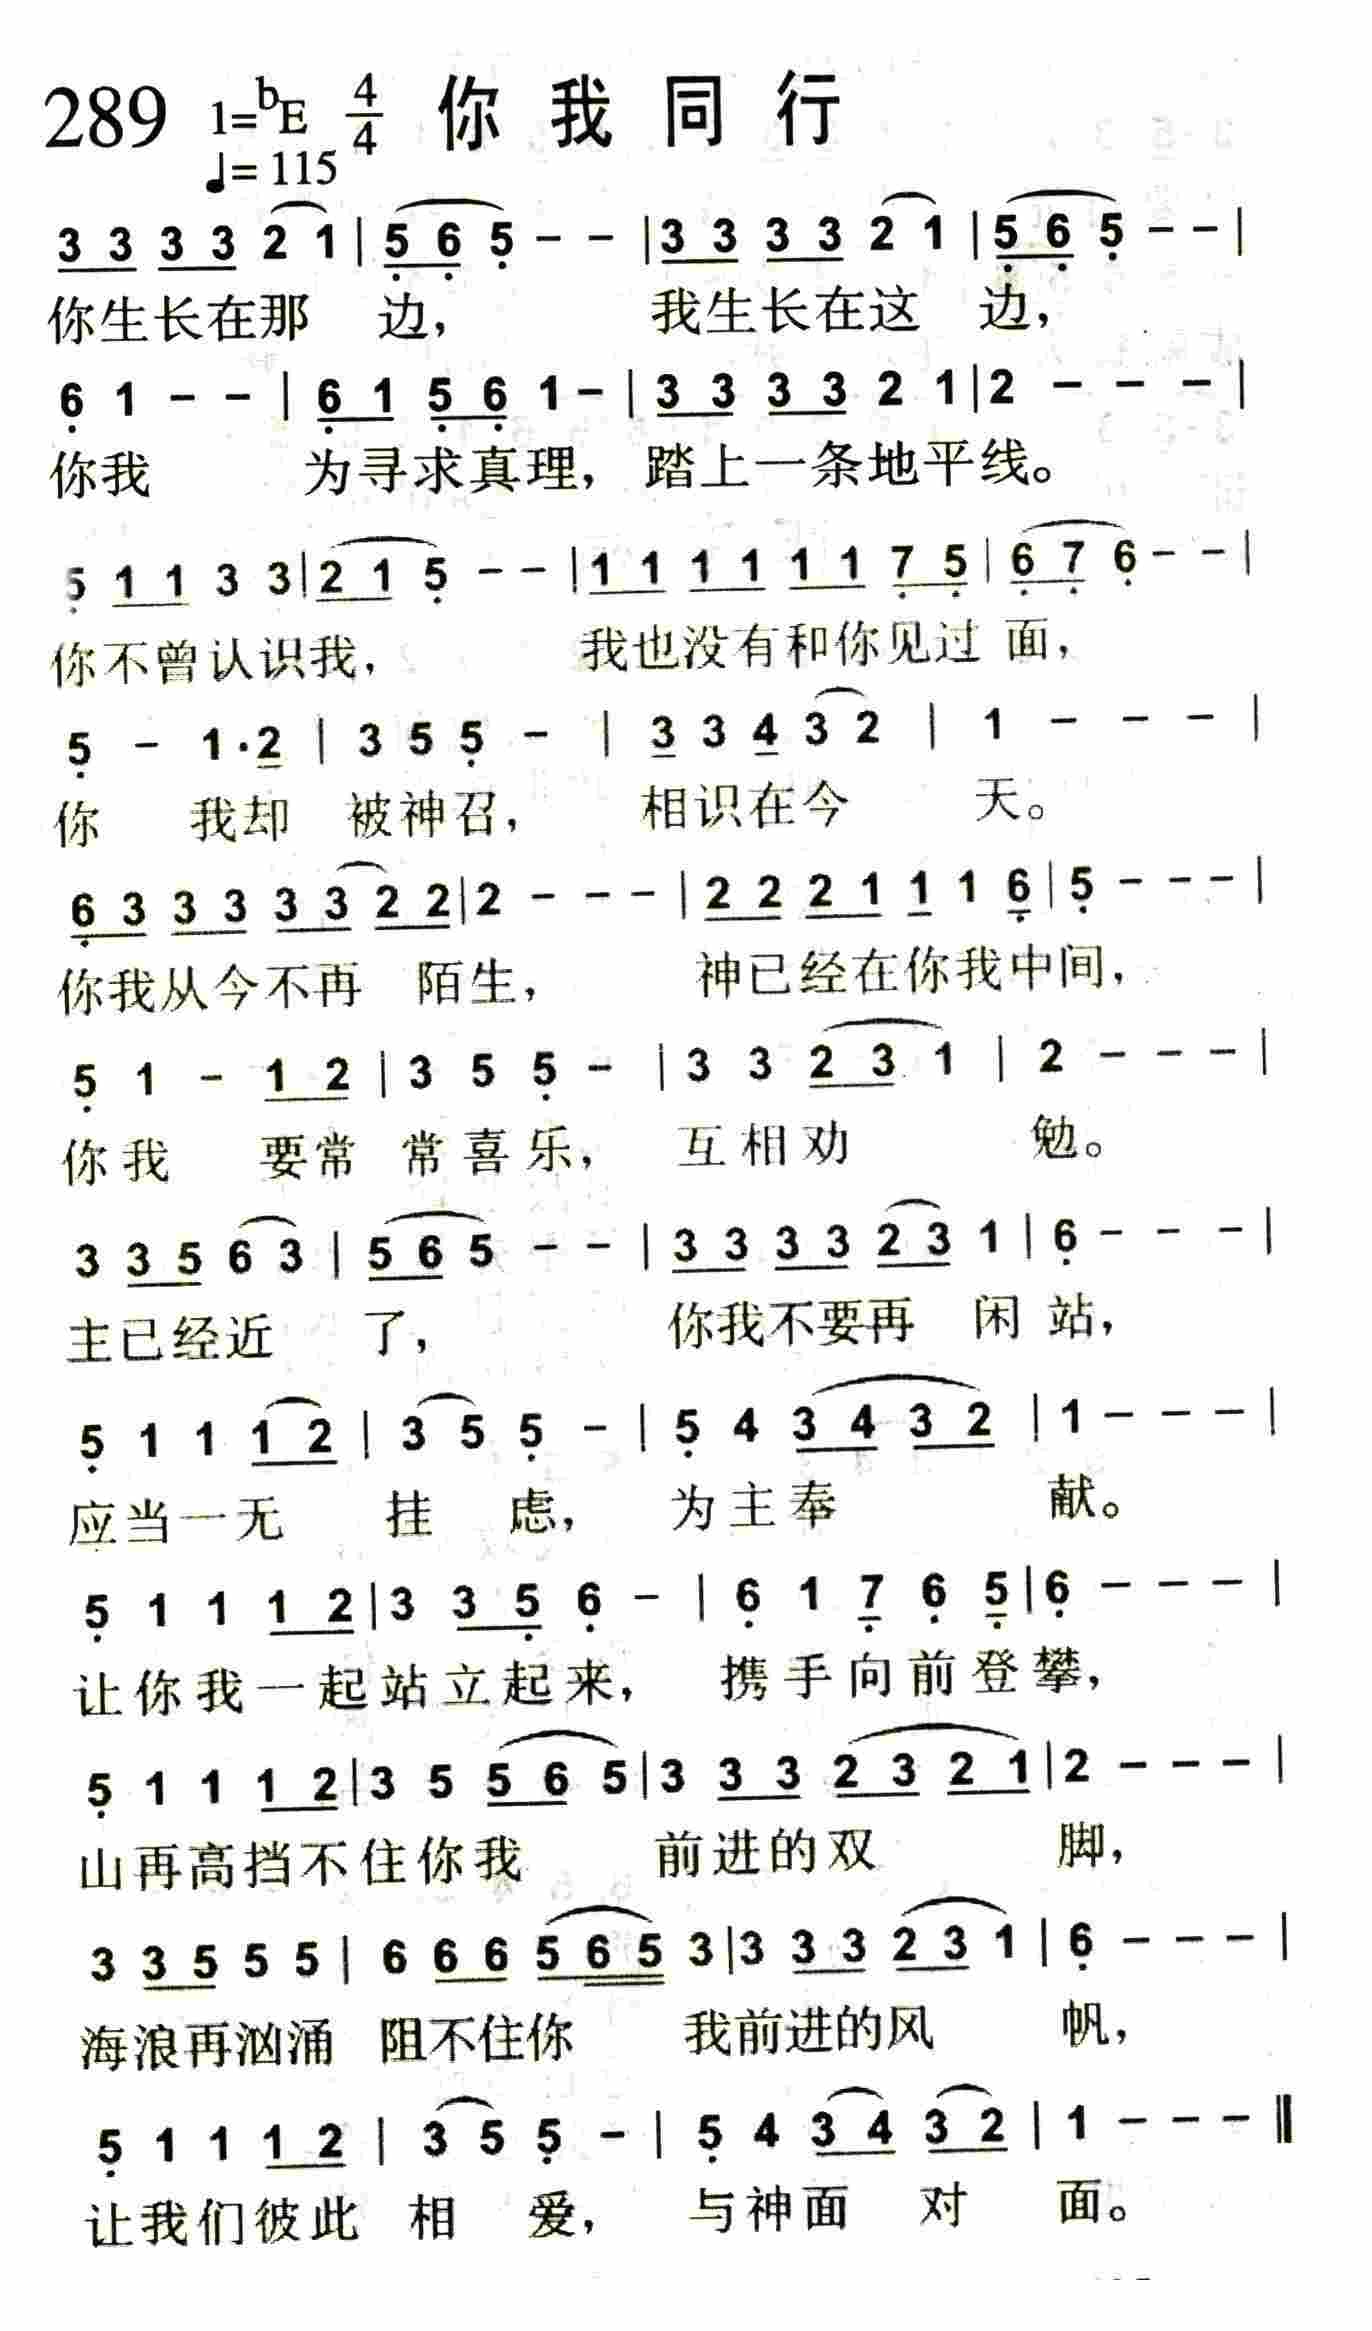 289 1=bE 4/4 你我同行
♩=115
3 3 3 3 2 1 | 5 6 5 - - | 3 3 3 3 2 1 | 5 6 5 - - |
你生长在那 边， 我生长在这 边，
6 1 - - | 6 1 5 6 1 - | 3 3 3 3 2 1 | 2 - - - |
你我 为寻求真理，踏上一条地平线。
5 1 1 3 3 | 2 1 5 - - | 1 1 1 1 1 1 7 5 | 6 7 6 - - |
你不曾认识我， 我也没有和你见过 面，
5 - 1·2 | 3 5 5 - | 3 3 4 3 2 | 1 - - - |
你 我却 被神召， 相识在今 天。
6 3 3 3 3 3 2 2 | 2 - - - | 2 2 2 1 1 1 6 | 5 - - - |
你我从今不再 陌生， 神已经在你我中间，
5 1 - 1 2 | 3 5 5 - | 3 3 2 3 1 | 2 - - - |
你我 要常 常喜乐， 互相劝 勉。
3 3 5 6 3 | 5 6 5 - - | 3 3 3 3 2 3 1 | 6 - - - |
主已经近 了， 你我不要再 闲 站，
5 1 1 1 2 | 3 5 5 - | 5 4 3 4 3 2 | 1 - - - |
应当一无 挂 虑， 为主奉 献。
5 1 1 1 2 | 3 3 5 6 - | 6 1 7 6 5 | 6 - - - |
让你我一起站立起来， 携手向前登攀，
5 1 1 1 2 | 3 5 5 6 5 | 3 3 3 2 3 2 1 | 2 - - - |
山再高挡不住你我 前进的双 脚，
3 3 5 5 5 | 6 6 6 5 6 5 3 | 3 3 3 2 3 1 | 6 - - - |
海浪再汹涌 阻不住你 我前进的风 帆，
5 1 1 1 2 | 3 5 5 - | 5 4 3 4 3 2 | 1 - - - ‖
让我们彼此 相 爱， 与神面 对 面。